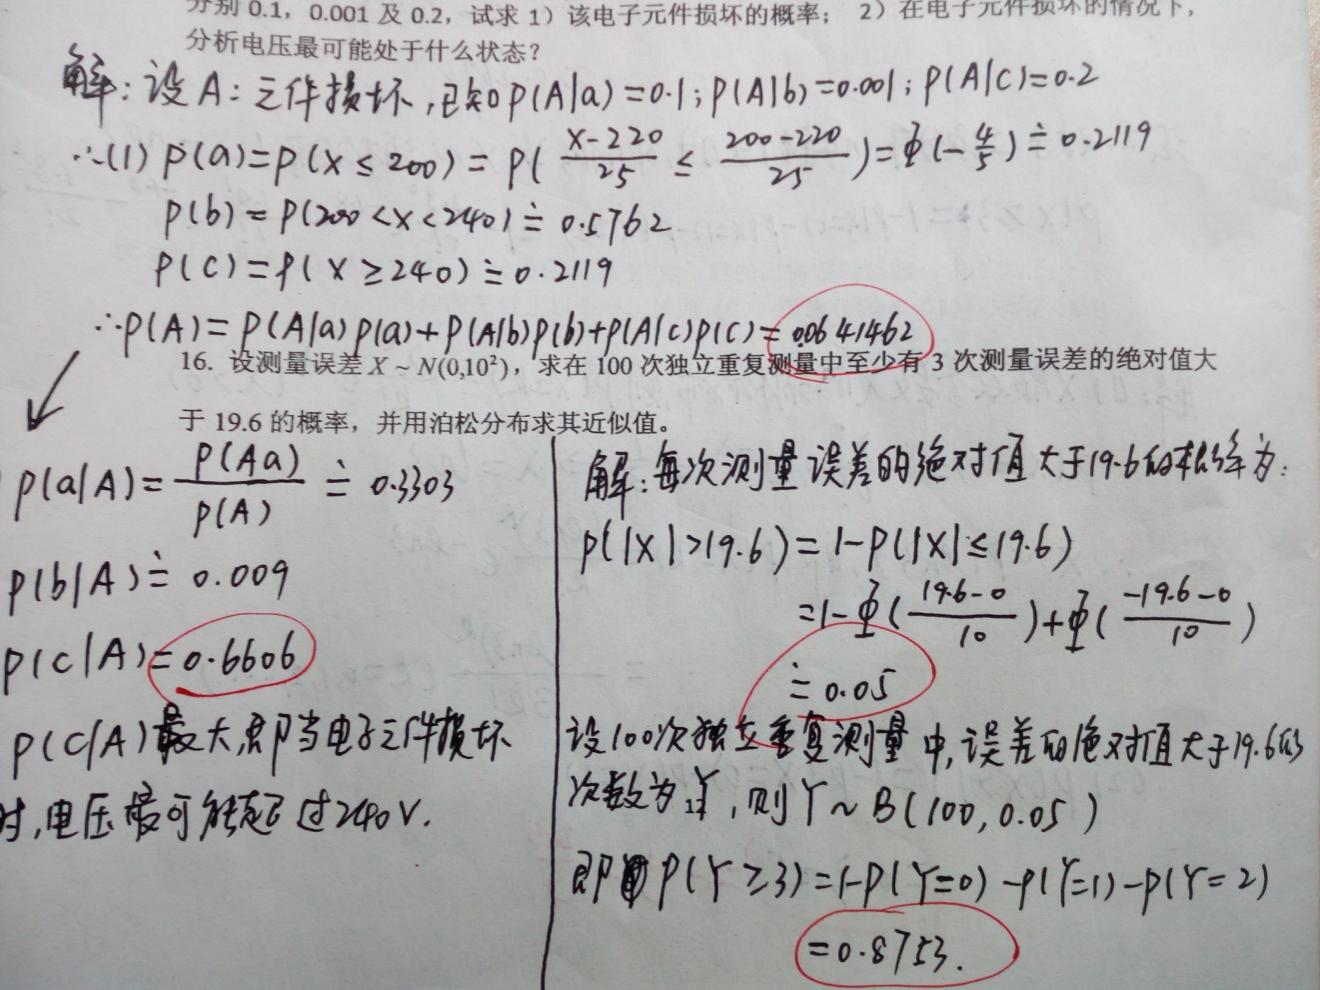 分别 0.1，0.001 及 0.2，试求 1）该电子元件损坏的概率； 2）在电子元件损坏的情况下，
分析电压最可能处于什么状态？
解：设A：元件损坏，已知P(A|a)=0.1；P(A|b)=0.001；P(A|c)=0.2
∴(1) P(a)=P(X≤200)=P(\frac{X-220}{25}≤\frac{200-220}{25})=Φ(-\frac{4}{5})≐0.2119
P(b)=P(200<X<240)≐0.5762
P(C)=P(X≥240)≐0.2119
∴P(A)=P(A|a)P(a)+P(A|b)P(b)+P(A|c)P(C)=0.0641462
16. 设测量误差 X ~ N(0,10²)，求在 100 次独立重复测量中至少有 3 次测量误差的绝对值大
于 19.6 的概率，并用泊松分布求其近似值。
P(a|A)=\frac{P(Aa)}{P(A)}≐0.3303
P(b|A)≐0.009
P(C|A)=0.6606
P(C|A)最大,即当电子元件损坏
时,电压最可能超过240V.
解:每次测量误差的绝对值大于19.6的概率为:
P(|X|>19.6)=1-P(|X|≤19.6)
=1-Φ(\frac{19.6-0}{10})+Φ(\frac{-19.6-0}{10})
≐0.05
设100次独立重复测量中,误差的绝对值大于19.6的
次数为Y,则Y~B(100,0.05)
即P(Y≥3)=1-P(Y=0)-P(Y=1)-P(Y=2)
=0.8753.